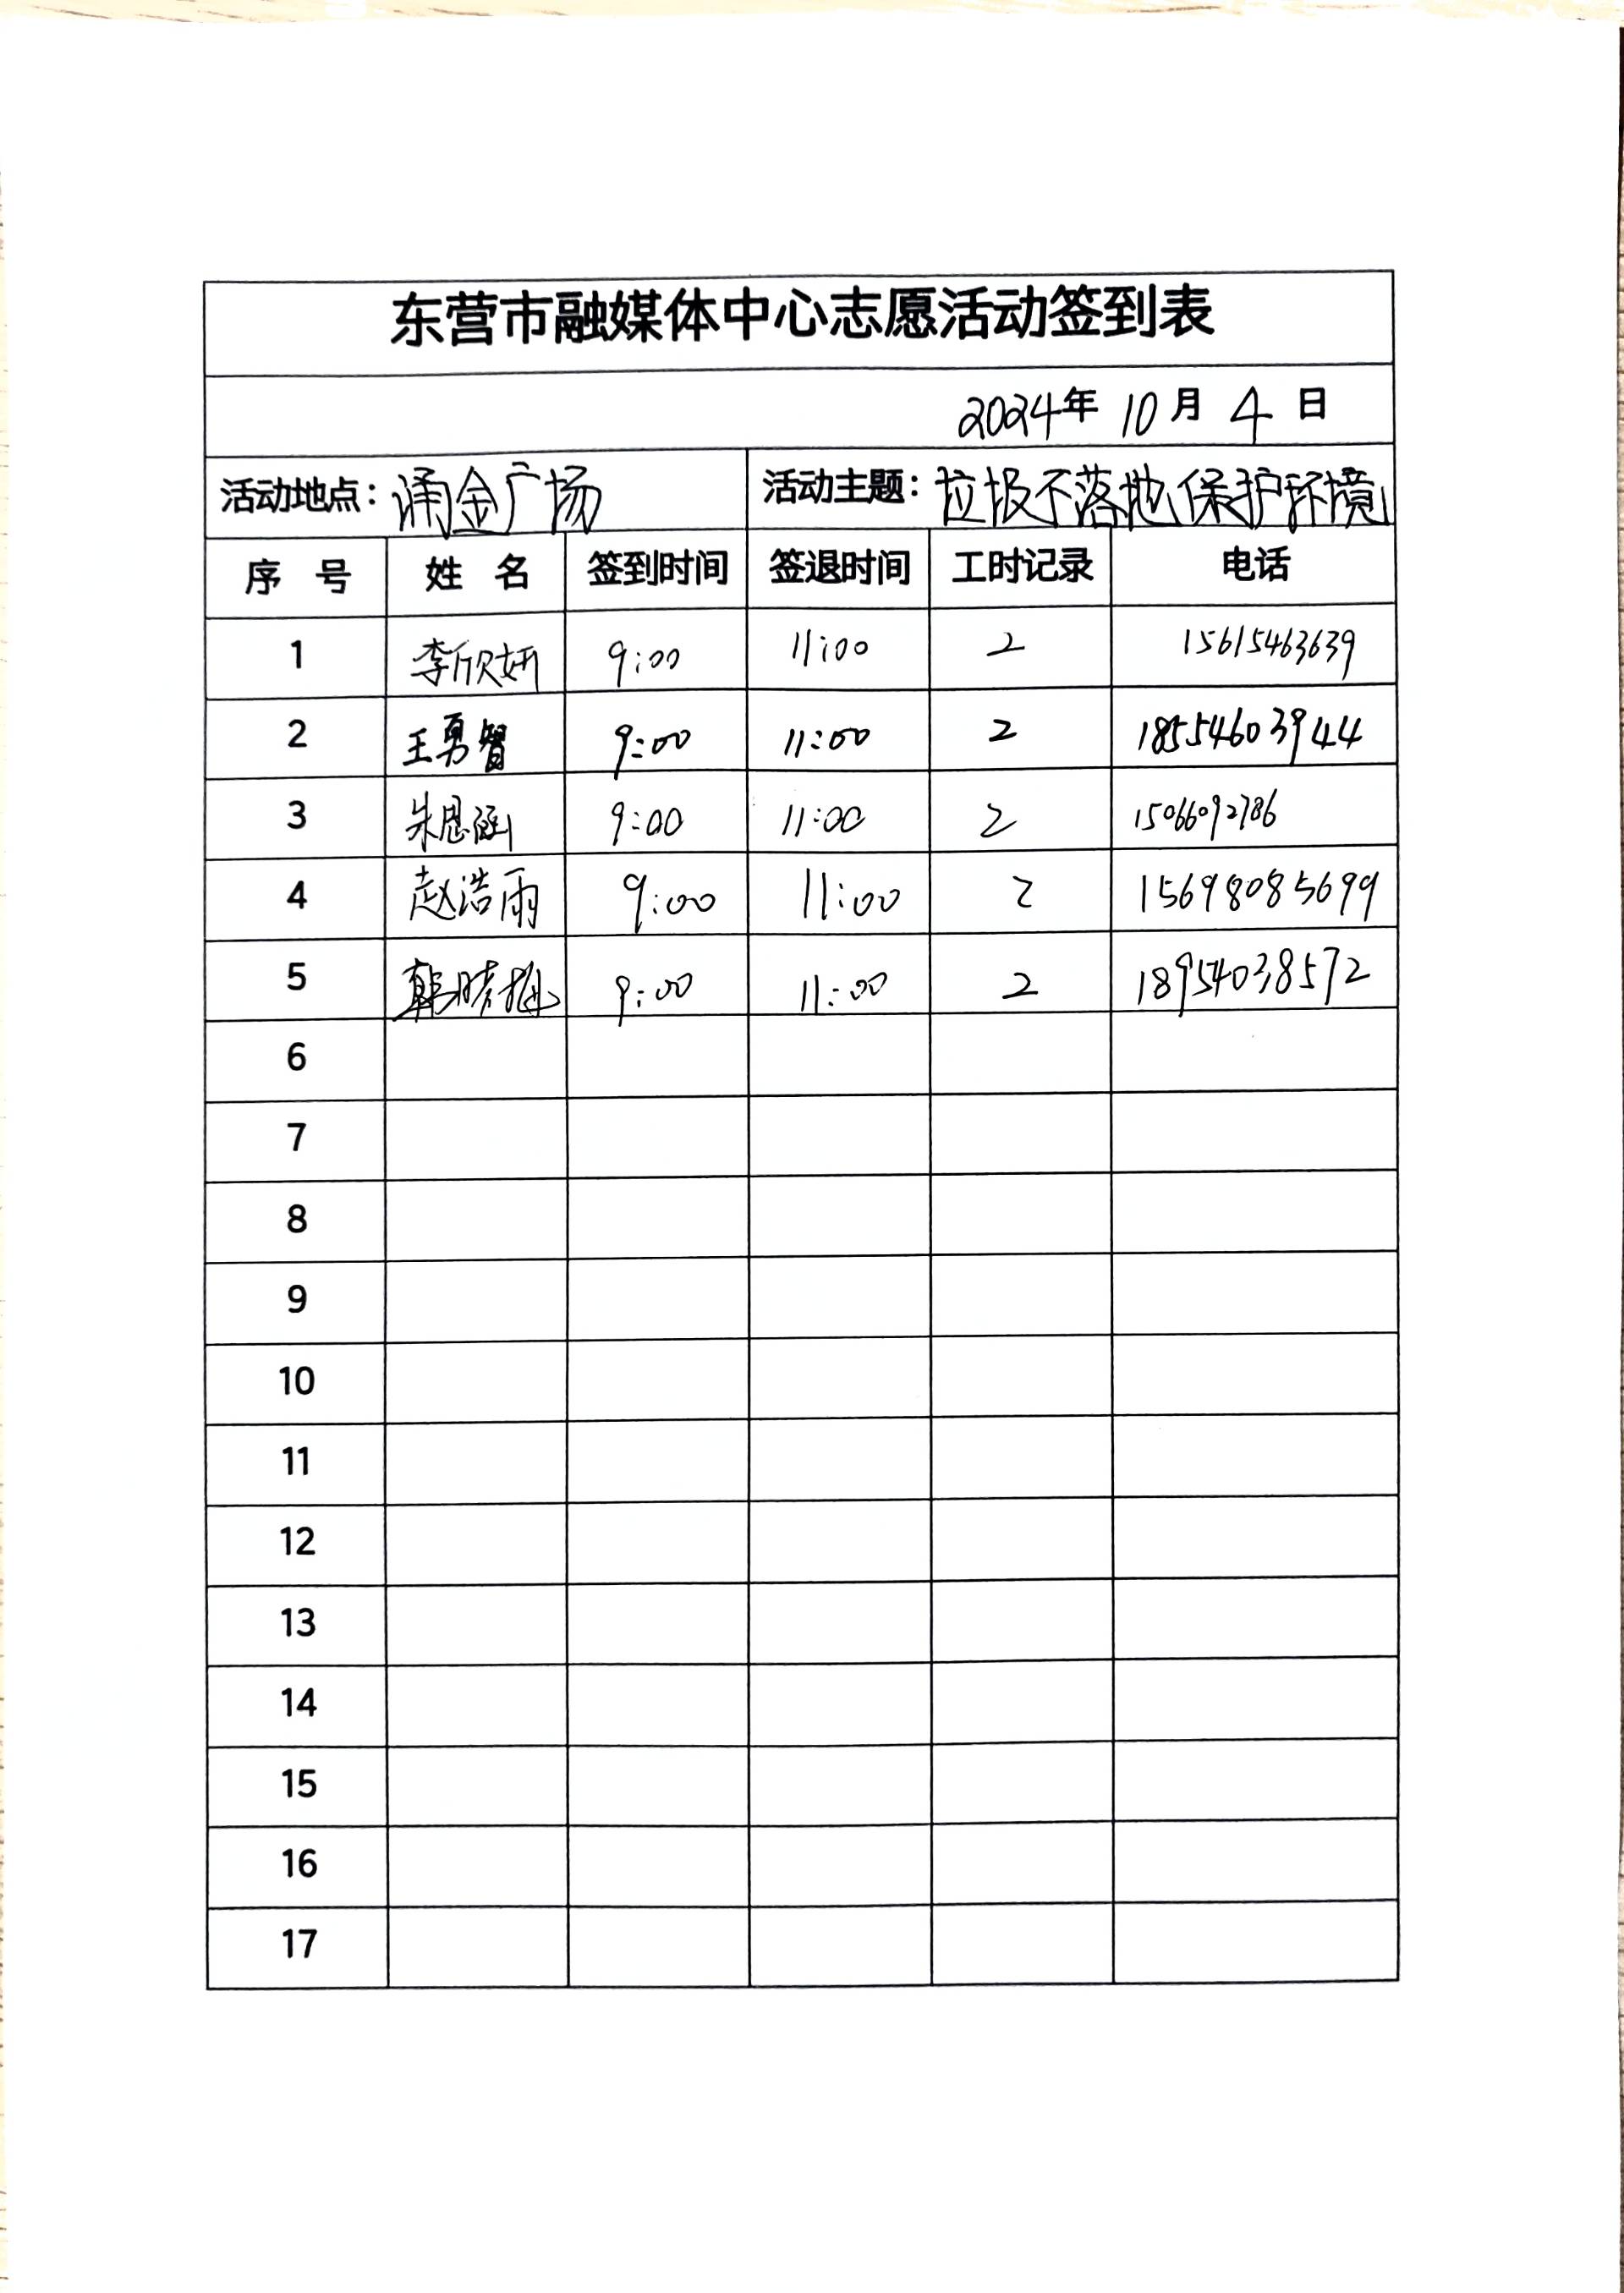 东营市融媒体中心志愿活动签到表
2024年 10月 4 日
活动地点：涌金广场 活动主题：垃圾不落地 保护环境
序 号 姓 名 签到时间 签退时间 工时记录 电话
1 李欣妍 9:00 11:00 2 15615463639
2 王勇智 9:00 11:00 2 18554603944
3 朱恩涵 9:00 11:00 2 15066092786
4 赵浩雨 9:00 11:00 2 15698085699
5 韩晓梅 9:00 11:00 2 18954038572
6
7
8
9
10
11
12
13
14
15
16
17